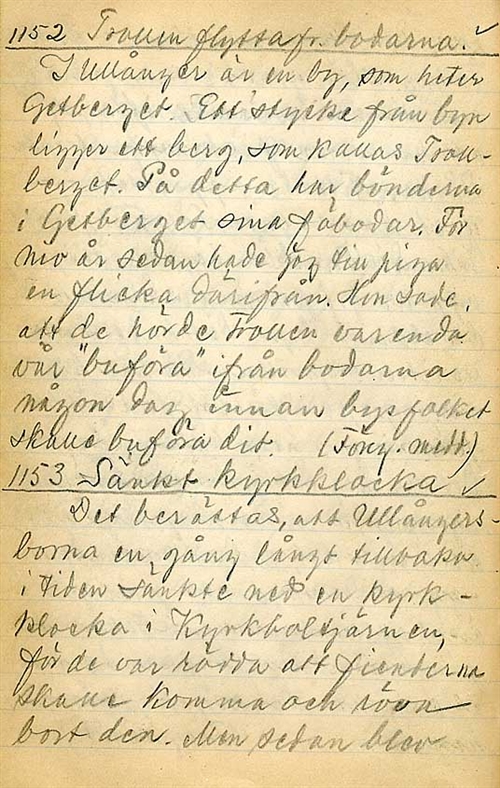 1152 Trollen flytta fr. bodarna.
I Ullånger är en by, som heter
Getberget. Ett stycke från byn
ligger ett berg, som kallas Troll-
berget. På detta har bönderna
i Getberget sina fäbodar. För
nio år sedan hade jag till piga
en flicka därifrån. Hon sade,
att de hörde trollen varenda
vår "buföra" ifrån bodarna
någon dag innan bysfolket
skulle buföra dit. (Förg. medd.)
1153 Sänkt kyrkklocka
Det berättas, att Ullångers-
borna en gång långt tillbaka
i tiden sänkte ned en kyrk-
klocka i Kyrkboltjärnen,
för de var rädda att fienderna
skulle komma och röva
bort den. Men sedan blev